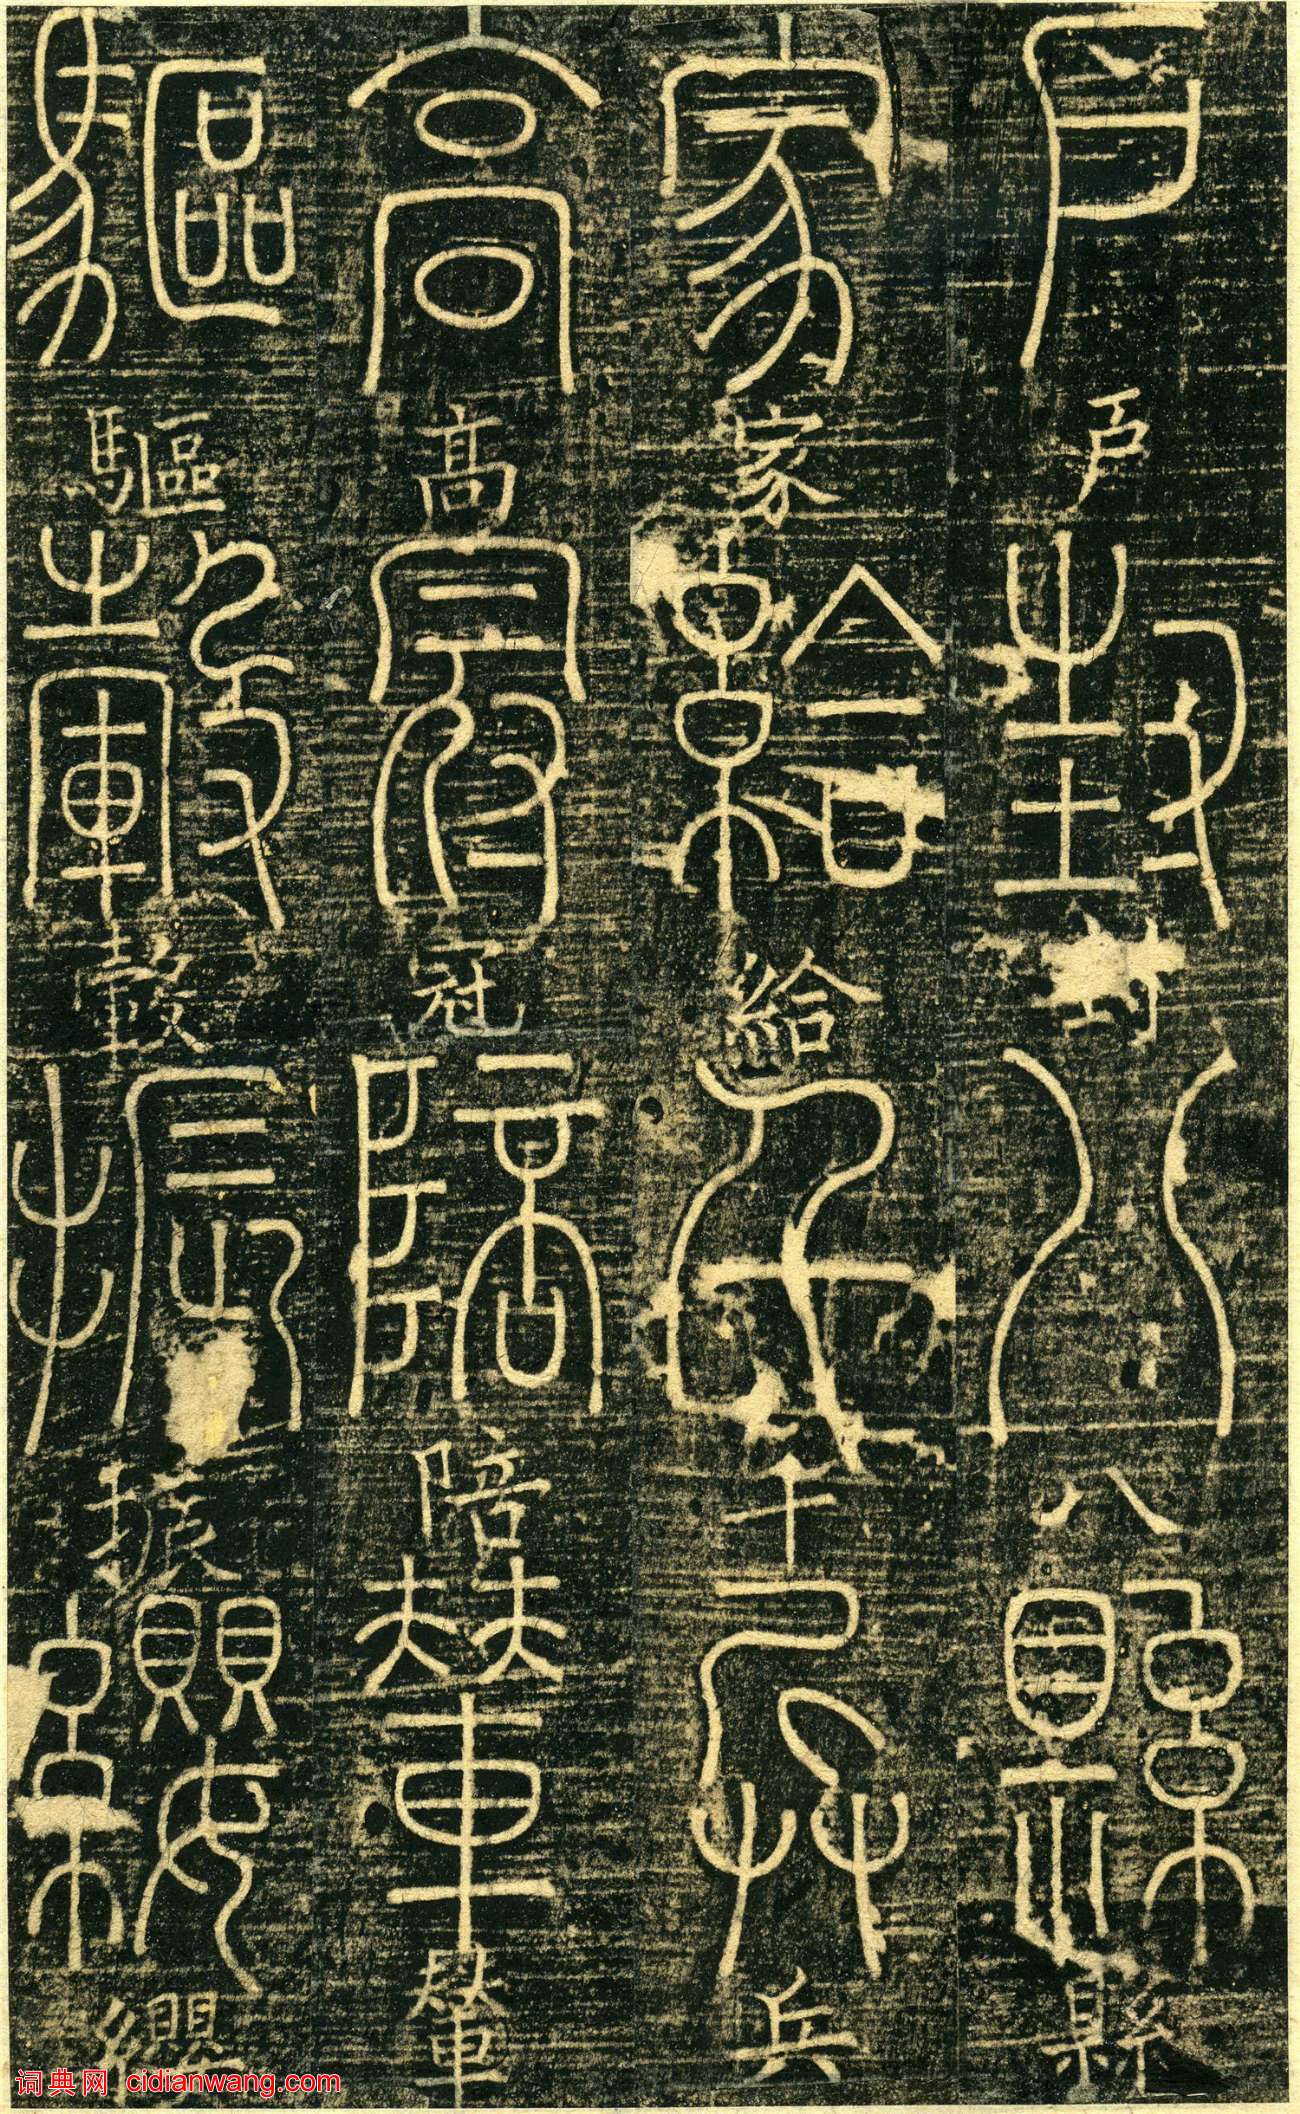 戶封八縣
家給千兵
高冠陪輦
驅轂振纓
词典网 cidianwang.com